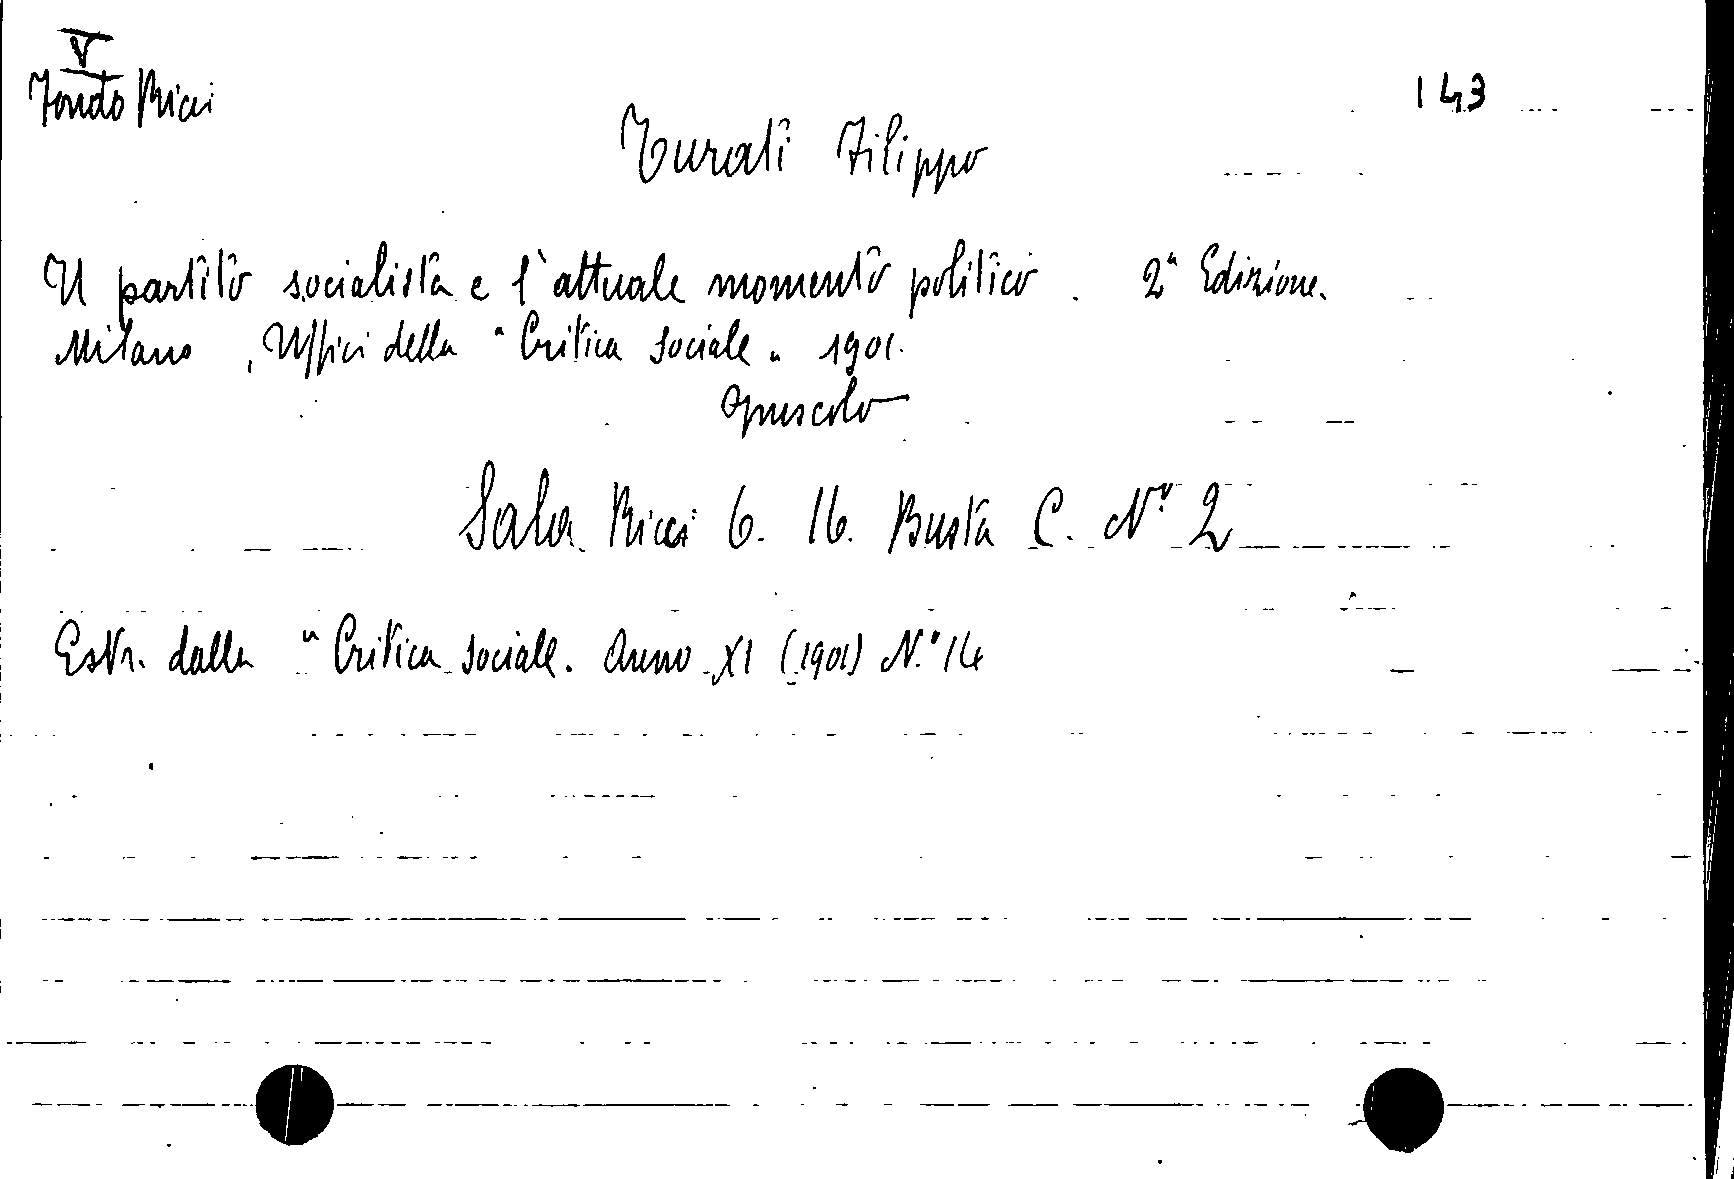 V
Fondo Ricci
143
Turati Filippo
Il partito socialista e l'attuale momento politico. 2ª Edizione.
Milano, Uffici della "Critica sociale" 1901.
opuscolo
Sala Ricci 6. 16. Busta C. N° 2
Estr. dalla "Critica sociale. Anno XI (1901) N.° 14